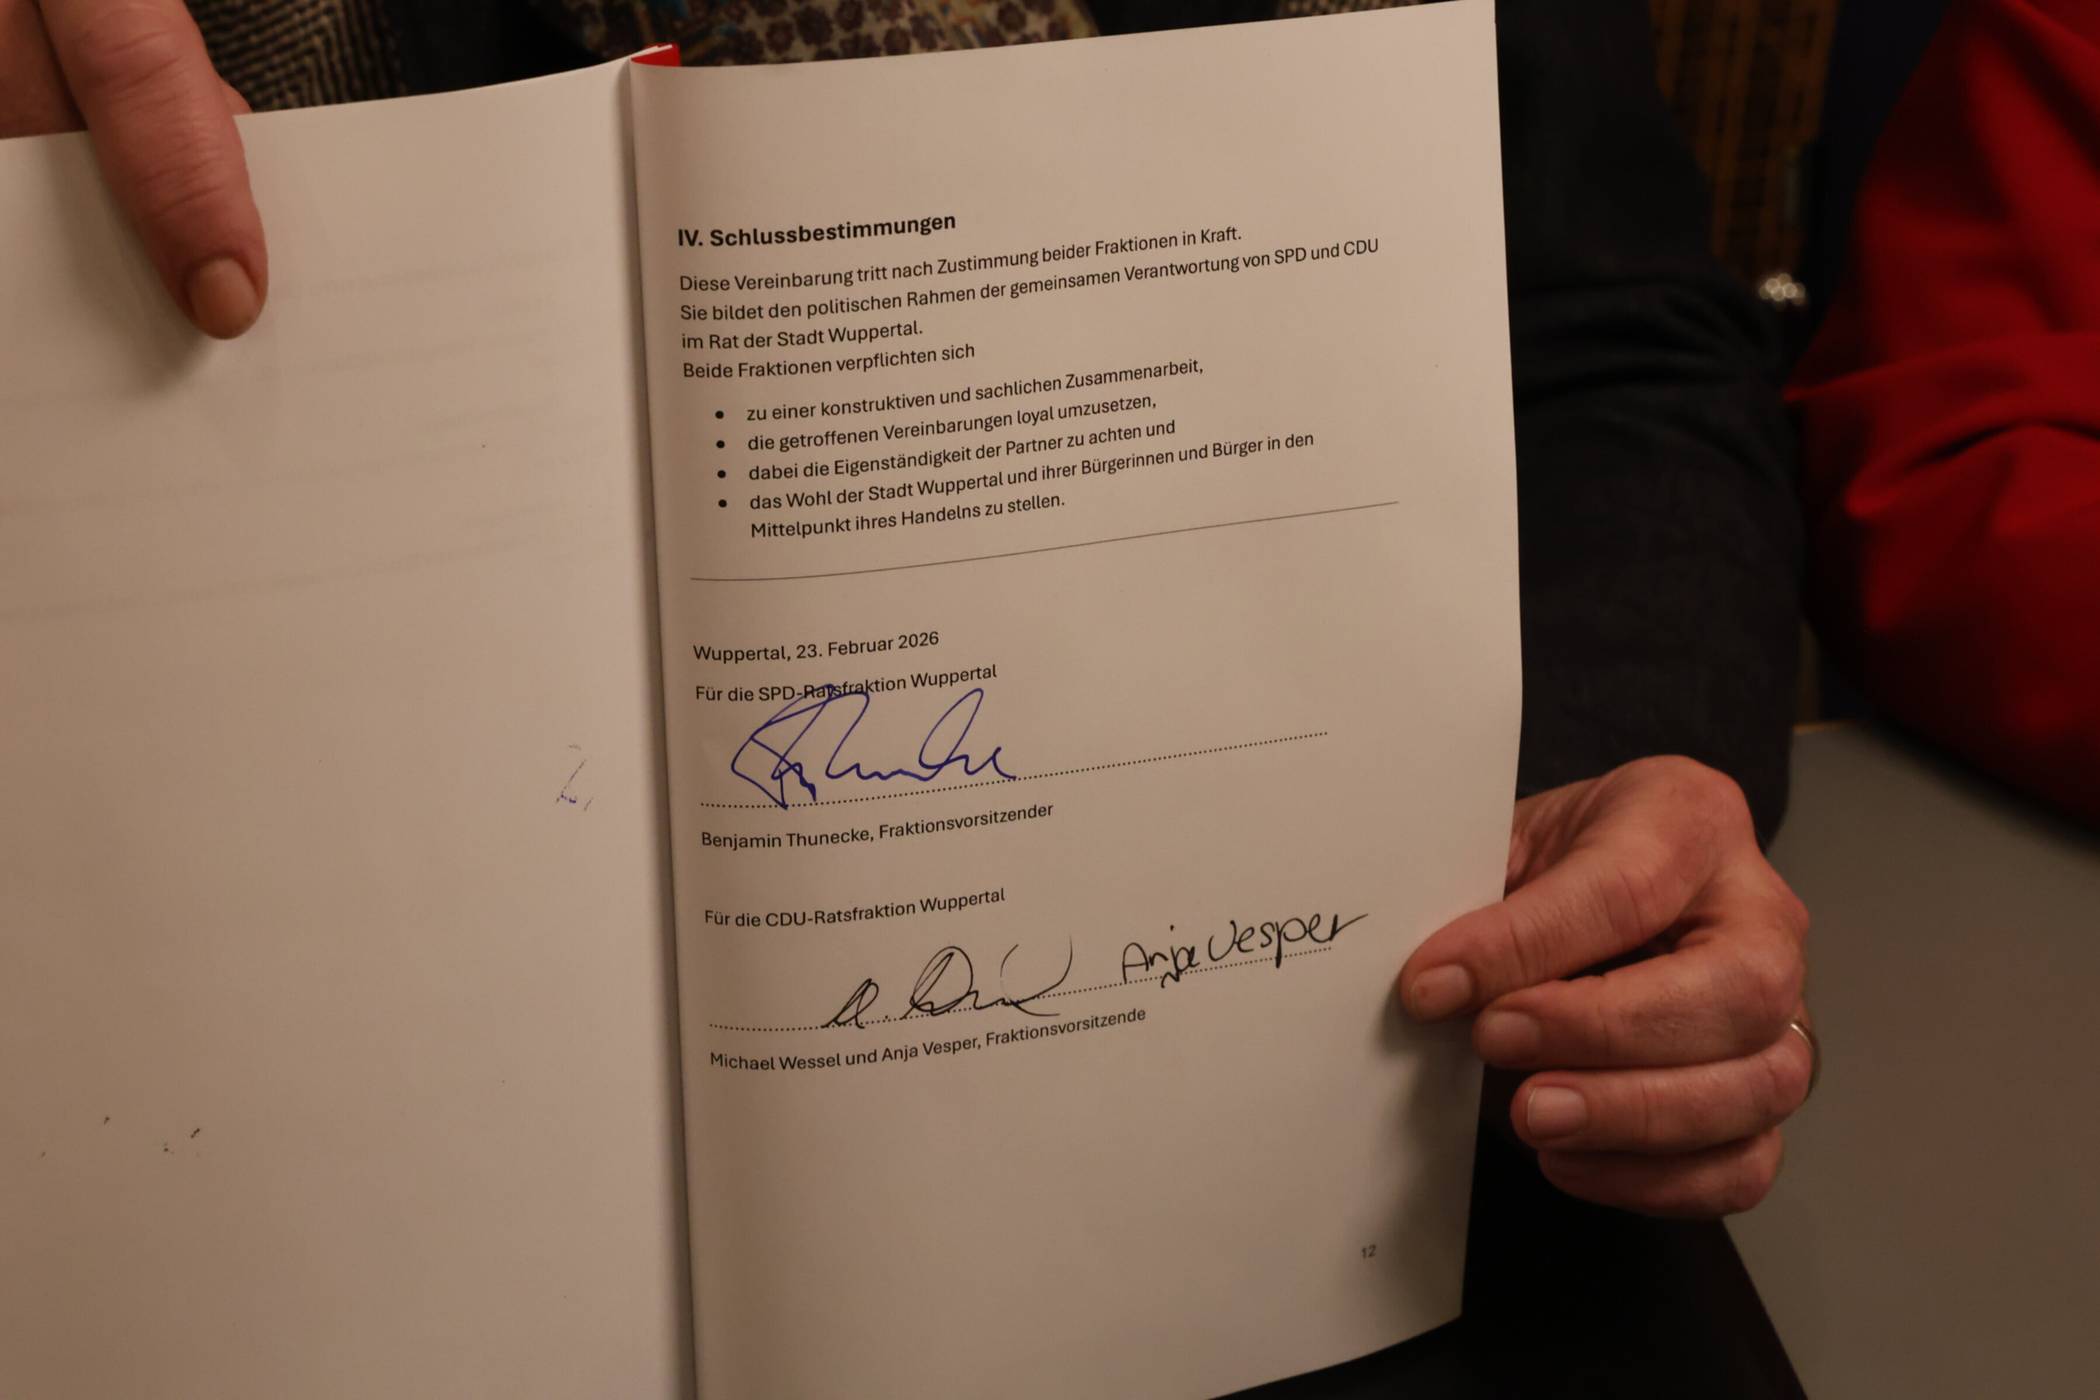 IV. Schlussbestimmungen
Diese Vereinbarung tritt nach Zustimmung beider Fraktionen in Kraft.
Sie bildet den politischen Rahmen der gemeinsamen Verantwortung von SPD und CDU
im Rat der Stadt Wuppertal.
Beide Fraktionen verpflichten sich
• zu einer konstruktiven und sachlichen Zusammenarbeit,
• die getroffenen Vereinbarungen loyal umzusetzen,
• dabei die Eigenständigkeit der Partner zu achten und
• das Wohl der Stadt Wuppertal und ihrer Bürgerinnen und Bürger in den
Mittelpunkt ihres Handelns zu stellen.
Wuppertal, 23. Februar 2026
Für die SPD-Ratsfraktion Wuppertal
Benjamin Thunecke, Fraktionsvorsitzender
Für die CDU-Ratsfraktion Wuppertal
Anja Vesper
Michael Wessel und Anja Vesper, Fraktionsvorsitzende
12